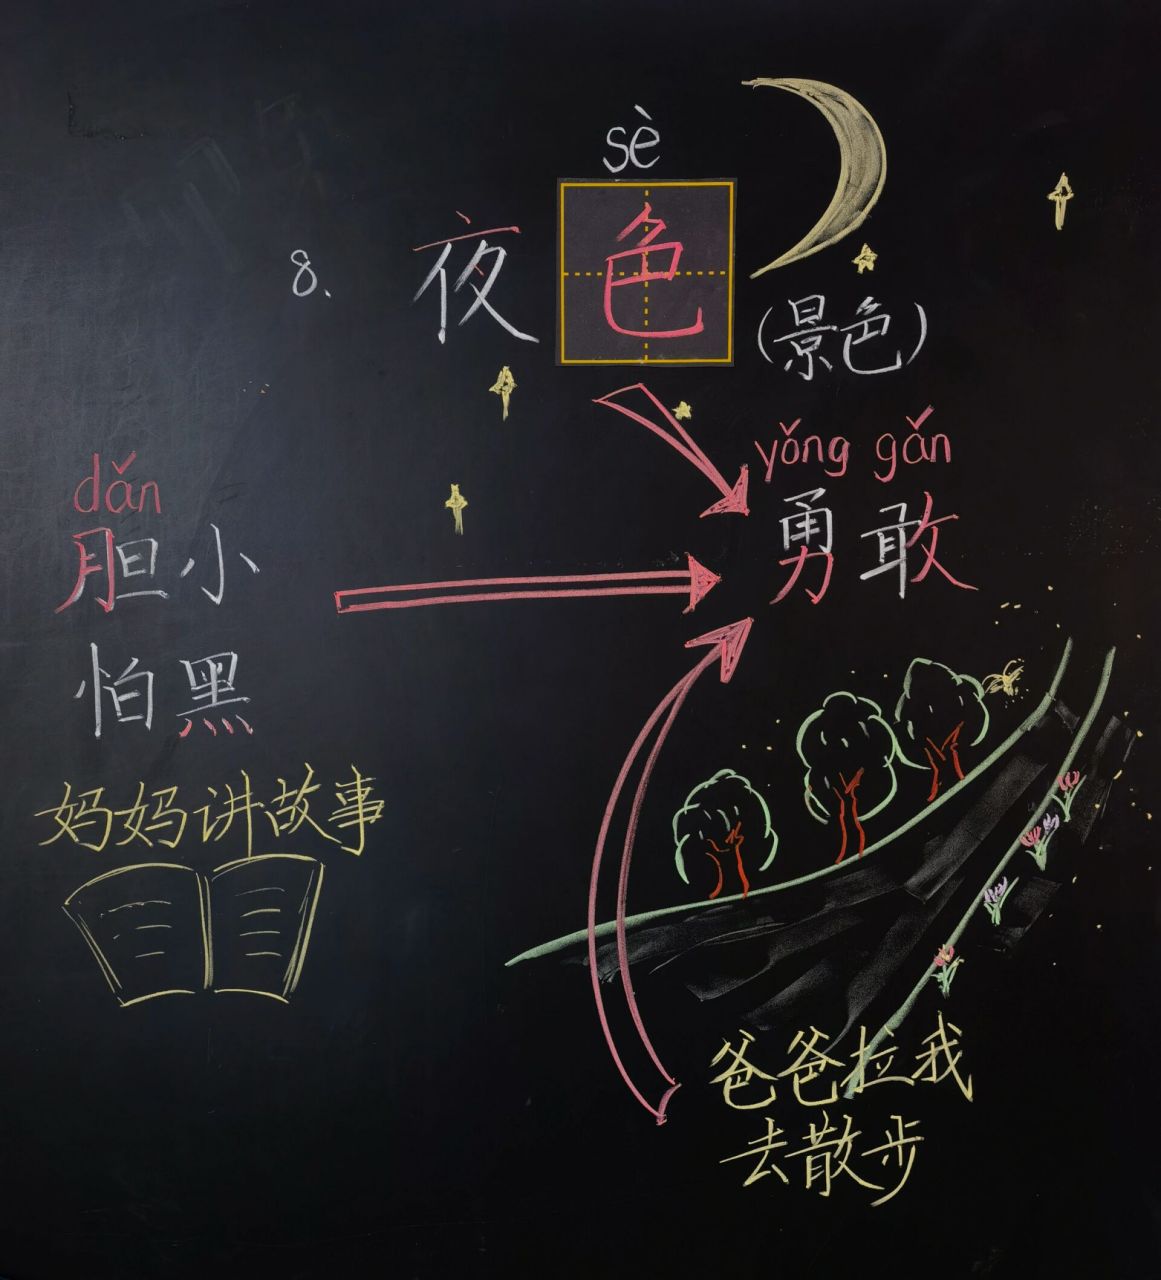 sè
8、夜色
(景色)
yǒng gǎn
勇敢
dǎn
胆小
怕黑
妈妈讲故事
爸爸拉我
去散步